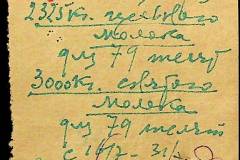 2325кг. цельного
молока
для 79 телят
3000кг.
молока
для 79 телят
с 16/7 - 31/